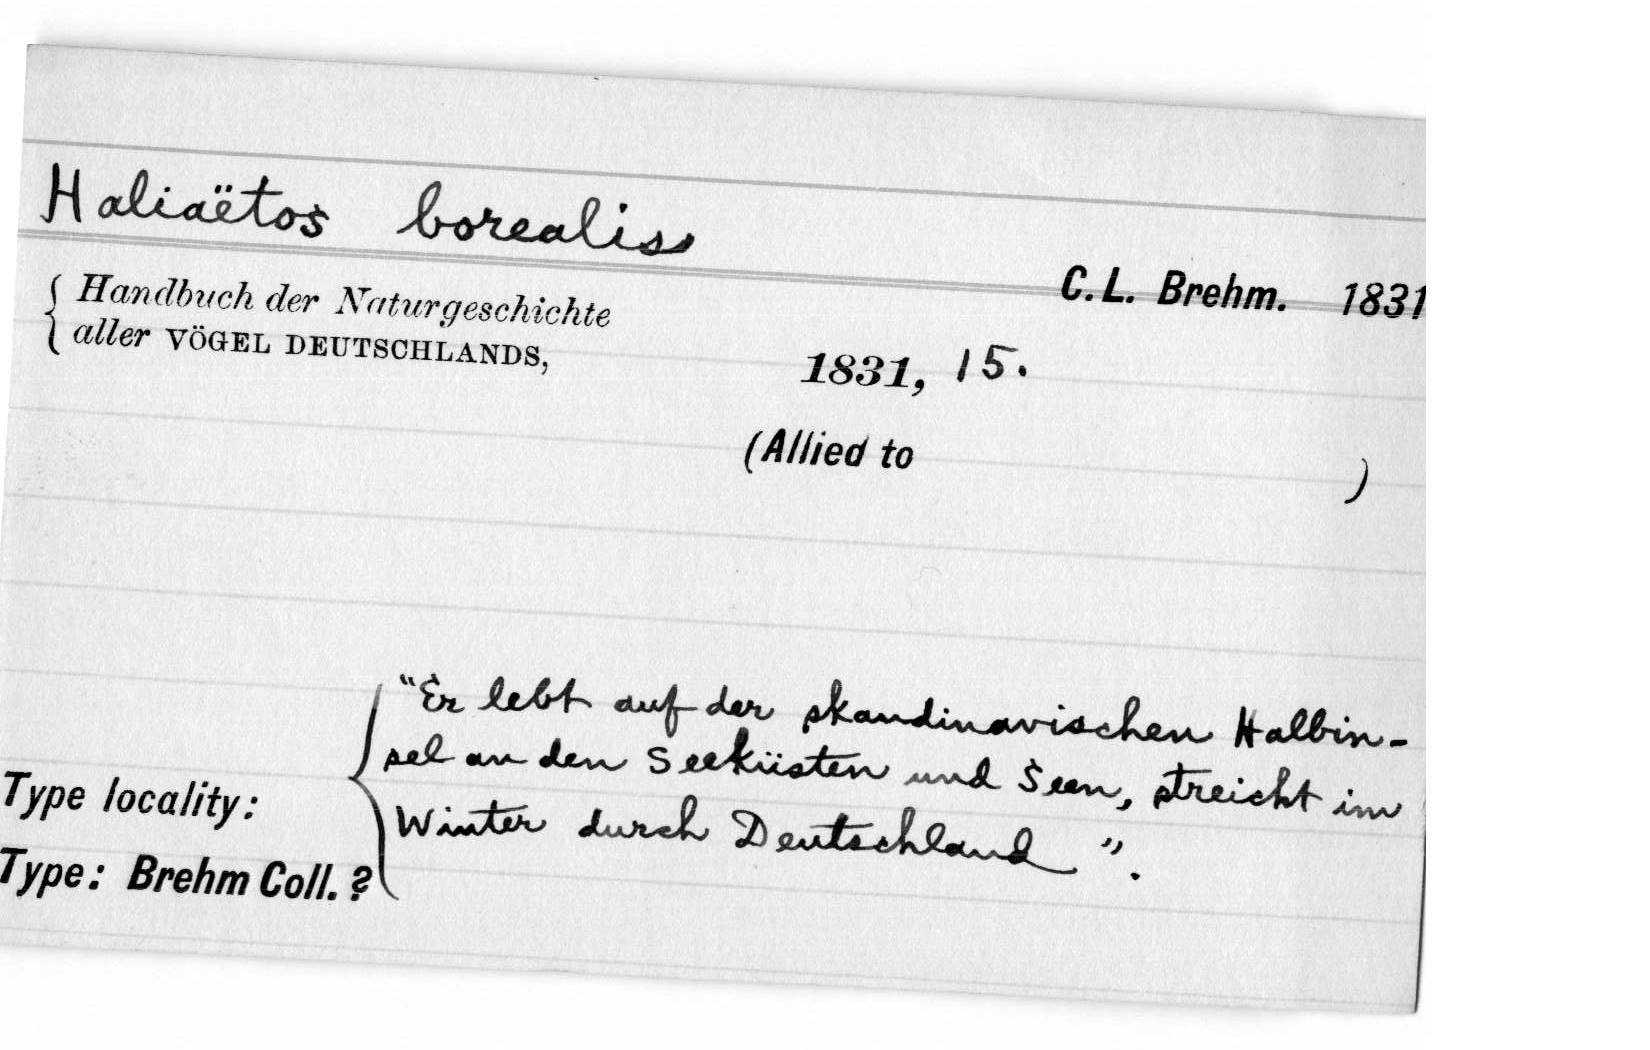 Haliaëtos borealis
C.L. Brehm. 1831
Handbuch der Naturgeschichte
aller VÖGEL DEUTSCHLANDS,
1831, 15.
(Allied to )
"Er lebt auf der skandinavischen Halbin-
sel an den Seeküsten und Seen, streicht im
Winter durch Deutschland".
Type locality:
Type: Brehm Coll. ?